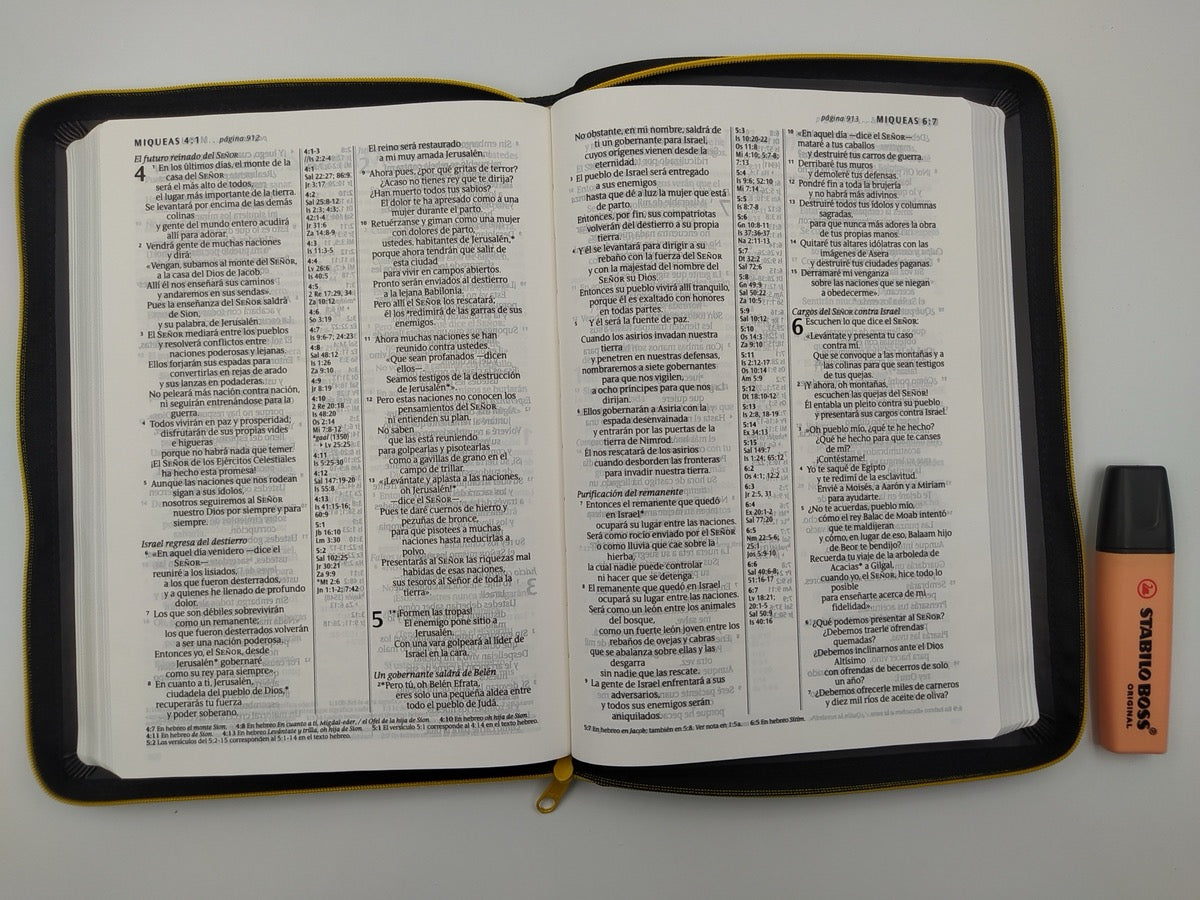 MIQUEAS 4:1 página 912
El futuro reinado del SEÑOR
4 1 En los últimos días, el monte de la
casa del SEÑOR
será el más alto de todos,
el lugar más importante de la tierra.
Se levantará por encima de las demás
colinas
y gente del mundo entero acudirá
allí para adorar.
2 Vendrá gente de muchas naciones
y dirá:
«Vengan, subamos al monte del SEÑOR,
a la casa del Dios de Jacob.
Allí él nos enseñará sus caminos
y andaremos en sus sendas».
Pues la enseñanza del SEÑOR saldrá
de Sion,
y su palabra, de Jerusalén.
3 El SEÑOR mediará entre los pueblos
y resolverá conflictos entre
naciones poderosas y lejanas.
Ellos forjarán sus espadas para
convertirlas en rejas de arado
y sus lanzas en podaderas.
No peleará más nación contra nación,
ni seguirán entrenándose para la
guerra.
4 Todos vivirán en paz y prosperidad;
disfrutarán de sus propias vides
e higueras
porque no habrá nada que temer.
¡El SEÑOR de los Ejércitos Celestiales
ha hecho esta promesa!
5 Aunque las naciones que nos rodean
sigan a sus ídolos,
nosotros seguiremos al SEÑOR
nuestro Dios por siempre y para
siempre.
Israel regresa del destierro
6 «En aquel día venidero —dice el
SEÑOR—
reuniré a los lisiados,
a los que fueron desterrados,
y a quienes he llenado de profundo
dolor.
7 Los que son débiles sobrevivirán
como un remanente;
los que fueron desterrados volverán
a ser una nación poderosa.
Entonces yo, el SEÑOR, desde
Jerusalén* gobernaré
como su rey para siempre».
8 En cuanto a ti, Jerusalén,
ciudadela del pueblo de Dios,*
recuperarás tu fuerza
y poder soberano.
4:1-3
//Is 2:2-4
4:1
Sal 22:27; 86:9
Jr 3:17
4:2
Sal 25:8-12
Is 2:3; 4:3;
42:1-4
Jr 31:6
Za 14:8-9
4:3
Is 11:3-5
4:4
Lv 26:6
Is 40:5
4:5
2 Re 17:29, 34
Za 10:12
4:6
So 3:19
4:7
Is 9:6-7; 24:23
4:8
Sal 48:12
Is 1:26
Za 9:10
4:9
Jr 8:19
4:10
2 Re 20:18
Is 48:20
Os 2:14
Mi 7:8-12
*gaal (1350)
Lv 25:25
4:11
Is 5:25-30
4:12
Sal 147:19-20
Is 55:8
4:13
Is 41:15-16;
60:9
5:1
Jb 16:10
Lm 3:30
5:2
Sal 102:25
Jr 30:21
Za 9:9
*Mt 2:6
Jn 1:1-2; 7:42
El reino será restaurado
a mi muy amada Jerusalén.
9 Ahora pues, ¿por qué gritas de terror?
¿Acaso no tienes rey que te dirija?
¿Han muerto todos tus sabios?
El dolor te ha apresado como a una
mujer durante el parto.
10 Retuérzanse y giman como una mujer
con dolores de parto,
ustedes, habitantes de Jerusalén,*
porque ahora tendrán que salir de
esta ciudad
para vivir en campos abiertos.
Pronto serán enviados al destierro
a la lejana Babilonia.
Pero allí el SEÑOR los rescatará;
él los *redimirá de las garras de sus
enemigos.
11 Ahora muchas naciones se han
reunido contra ustedes.
«Que sean profanados —dicen
ellos—.
Seamos testigos de la destrucción
de Jerusalén*».
12 Pero estas naciones no conocen los
pensamientos del SEÑOR
ni entienden su plan.
No saben
que las está reuniendo
para golpearlas y pisotearlas
como a gavillas de grano en el
campo de trillar.
13 «¡Levántate y aplasta a las naciones,
oh Jerusalén!*
—dice el SEÑOR—.
Pues te daré cuernos de hierro y
pezuñas de bronce,
para que pisotees a muchas
naciones hasta reducirlas a
polvo.
Presentarás al SEÑOR las riquezas mal
habidas de esas naciones,
sus tesoros al Señor de toda la
tierra».
5 1*¡Formen las tropas!
El enemigo pone sitio a
Jerusalén.
Con una vara golpeará al líder de
Israel en la cara.
Un gobernante saldrá de Belén
2*Pero tú, oh Belén Efrata,
eres solo una pequeña aldea entre
todo el pueblo de Judá.
4:7 En hebreo el monte Sion. 4:8 En hebreo En cuanto a ti, Migdal-eder, / el Ofel de la hija de Sion. 4:10 En hebreo oh hija de Sion.
4:11 En hebreo de Sion. 4:13 En hebreo Levántate y trilla, oh hija de Sion. 5:1 El versículo 5:1 corresponde al 4:14 en el texto hebreo.
5:2 Los versículos del 5:2-15 corresponden al 5:1-14 en el texto hebreo.
página 913 MIQUEAS 6:7
No obstante, en mi nombre, saldrá de
ti un gobernante para Israel,
cuyos orígenes vienen desde la
eternidad.
3 El pueblo de Israel será entregado
a sus enemigos
hasta que dé a luz la mujer que está
de parto.
Entonces, por fin, sus compatriotas
volverán del destierro a su propia
tierra.
4 Y él se levantará para dirigir a su
rebaño con la fuerza del SEÑOR
y con la majestad del nombre del
SEÑOR su Dios.
Entonces su pueblo vivirá allí tranquilo,
porque él es exaltado con honores
en todas partes.
5 Y él será la fuente de paz.
Cuando los asirios invadan nuestra
tierra
y penetren en nuestras defensas,
nombraremos a siete gobernantes
para que nos vigilen,
a ocho príncipes para que nos
dirijan.
6 Ellos gobernarán a Asiria con la
espada desenvainada
y entrarán por las puertas de la
tierra de Nimrod.
Él nos rescatará de los asirios
cuando desborden las fronteras
para invadir nuestra tierra.
Purificación del remanente
7 Entonces el remanente que quedó
en Israel*
ocupará su lugar entre las naciones.
Será como rocío enviado por el SEÑOR
o como lluvia que cae sobre la
hierba,
la cual nadie puede controlar
ni hacer que se detenga.
8 El remanente que quedó en Israel
ocupará su lugar entre las naciones.
Será como un león entre los animales
del bosque,
como un fuerte león joven entre los
rebaños de ovejas y cabras
que se abalanza sobre ellas y las
desgarra
sin nadie que las rescate.
9 La gente de Israel enfrentará a sus
adversarios,
y todos sus enemigos serán
aniquilados.
5:3
Is 10:20-22
Os 11:8
Mi 4:10; 5:7-8;
7:13
5:4
Is 9:6; 52:10
Mi 7:14
5:5
Is 8:7-8
5:6
Gn 10:8-11
Is 37:36-37
Na 2:11-13
5:7
Dt 32:2
Sal 72:6
5:8
Gn 49:9
Sal 50:22
Za 10:5
5:9
Sal 10:12
5:10
Os 14:3
Za 9:10
5:11
Is 2:12-17
Os 10:14
Am 5:9
5:12
Dt 18:10-12
5:13
Is 2:8, 18-19
5:14
Ex 34:13
5:15
Sal 149:7
Is 1:24; 65:12
6:2
Os 4:1; 12:2
6:3
Jr 2:5, 31
6:4
Ex 20:1-2
Sal 77:20
6:5
Nm 22:5-6;
25:1
Jos 5:9-10
6:6
Sal 40:6-8;
51:16-17
6:7
Lv 18:21;
20:1-5
Sal 50:9
Is 40:16
10 «En aquel día —dice el SEÑOR—
mataré a tus caballos
y destruiré tus carros de guerra.
11 Derribaré tus muros
y demoleré tus defensas.
12 Pondré fin a toda la brujería
y no habrá más adivinos.
13 Destruiré todos tus ídolos y columnas
sagradas,
para que nunca más adores la obra
de tus propias manos.
14 Quitaré tus altares idólatras con las
imágenes de Asera
y destruiré tus ciudades paganas.
15 Derramaré mi venganza
sobre las naciones que se niegan
a obedecerme».
Cargos del SEÑOR contra Israel
6 Escuchen lo que dice el SEÑOR:
«Levántate y presenta tu caso
contra mí.
Que se convoque a las montañas y a
las colinas para que sean testigos
de tus quejas.
2 ¡Y ahora, oh montañas,
escuchen las quejas del SEÑOR!
Él entabla un pleito contra su pueblo
y presentará sus cargos contra Israel.
3 »Oh pueblo mío, ¿qué te he hecho?
¿Qué he hecho para que te canses
de mí?
¡Contéstame!
4 Yo te saqué de Egipto
y te redimí de la esclavitud.
Envié a Moisés, a Aarón y a Miriam
para ayudarte.
5 ¿No te acuerdas, pueblo mío,
cómo el rey Balac de Moab intentó
que te maldijeran
y cómo, en lugar de eso, Balaam hijo
de Beor te bendijo?
Recuerda tu viaje de la arboleda de
Acacias* a Gilgal,
cuando yo, el SEÑOR, hice todo lo
posible
para enseñarte acerca de mi
fidelidad».
6 ¿Qué podemos presentar al SEÑOR?
¿Debemos traerle ofrendas
quemadas?
¿Debemos inclinarnos ante el Dios
Altísimo
con ofrendas de becerros de solo
un año?
7 ¿Debemos ofrecerle miles de carneros
y diez mil ríos de aceite de oliva?
5:7 En hebreo en Jacob; también en 5:8. Ver nota en 1:5a. 6:5 En hebreo Sitim.
STABILO BOSS®
ORIGINAL